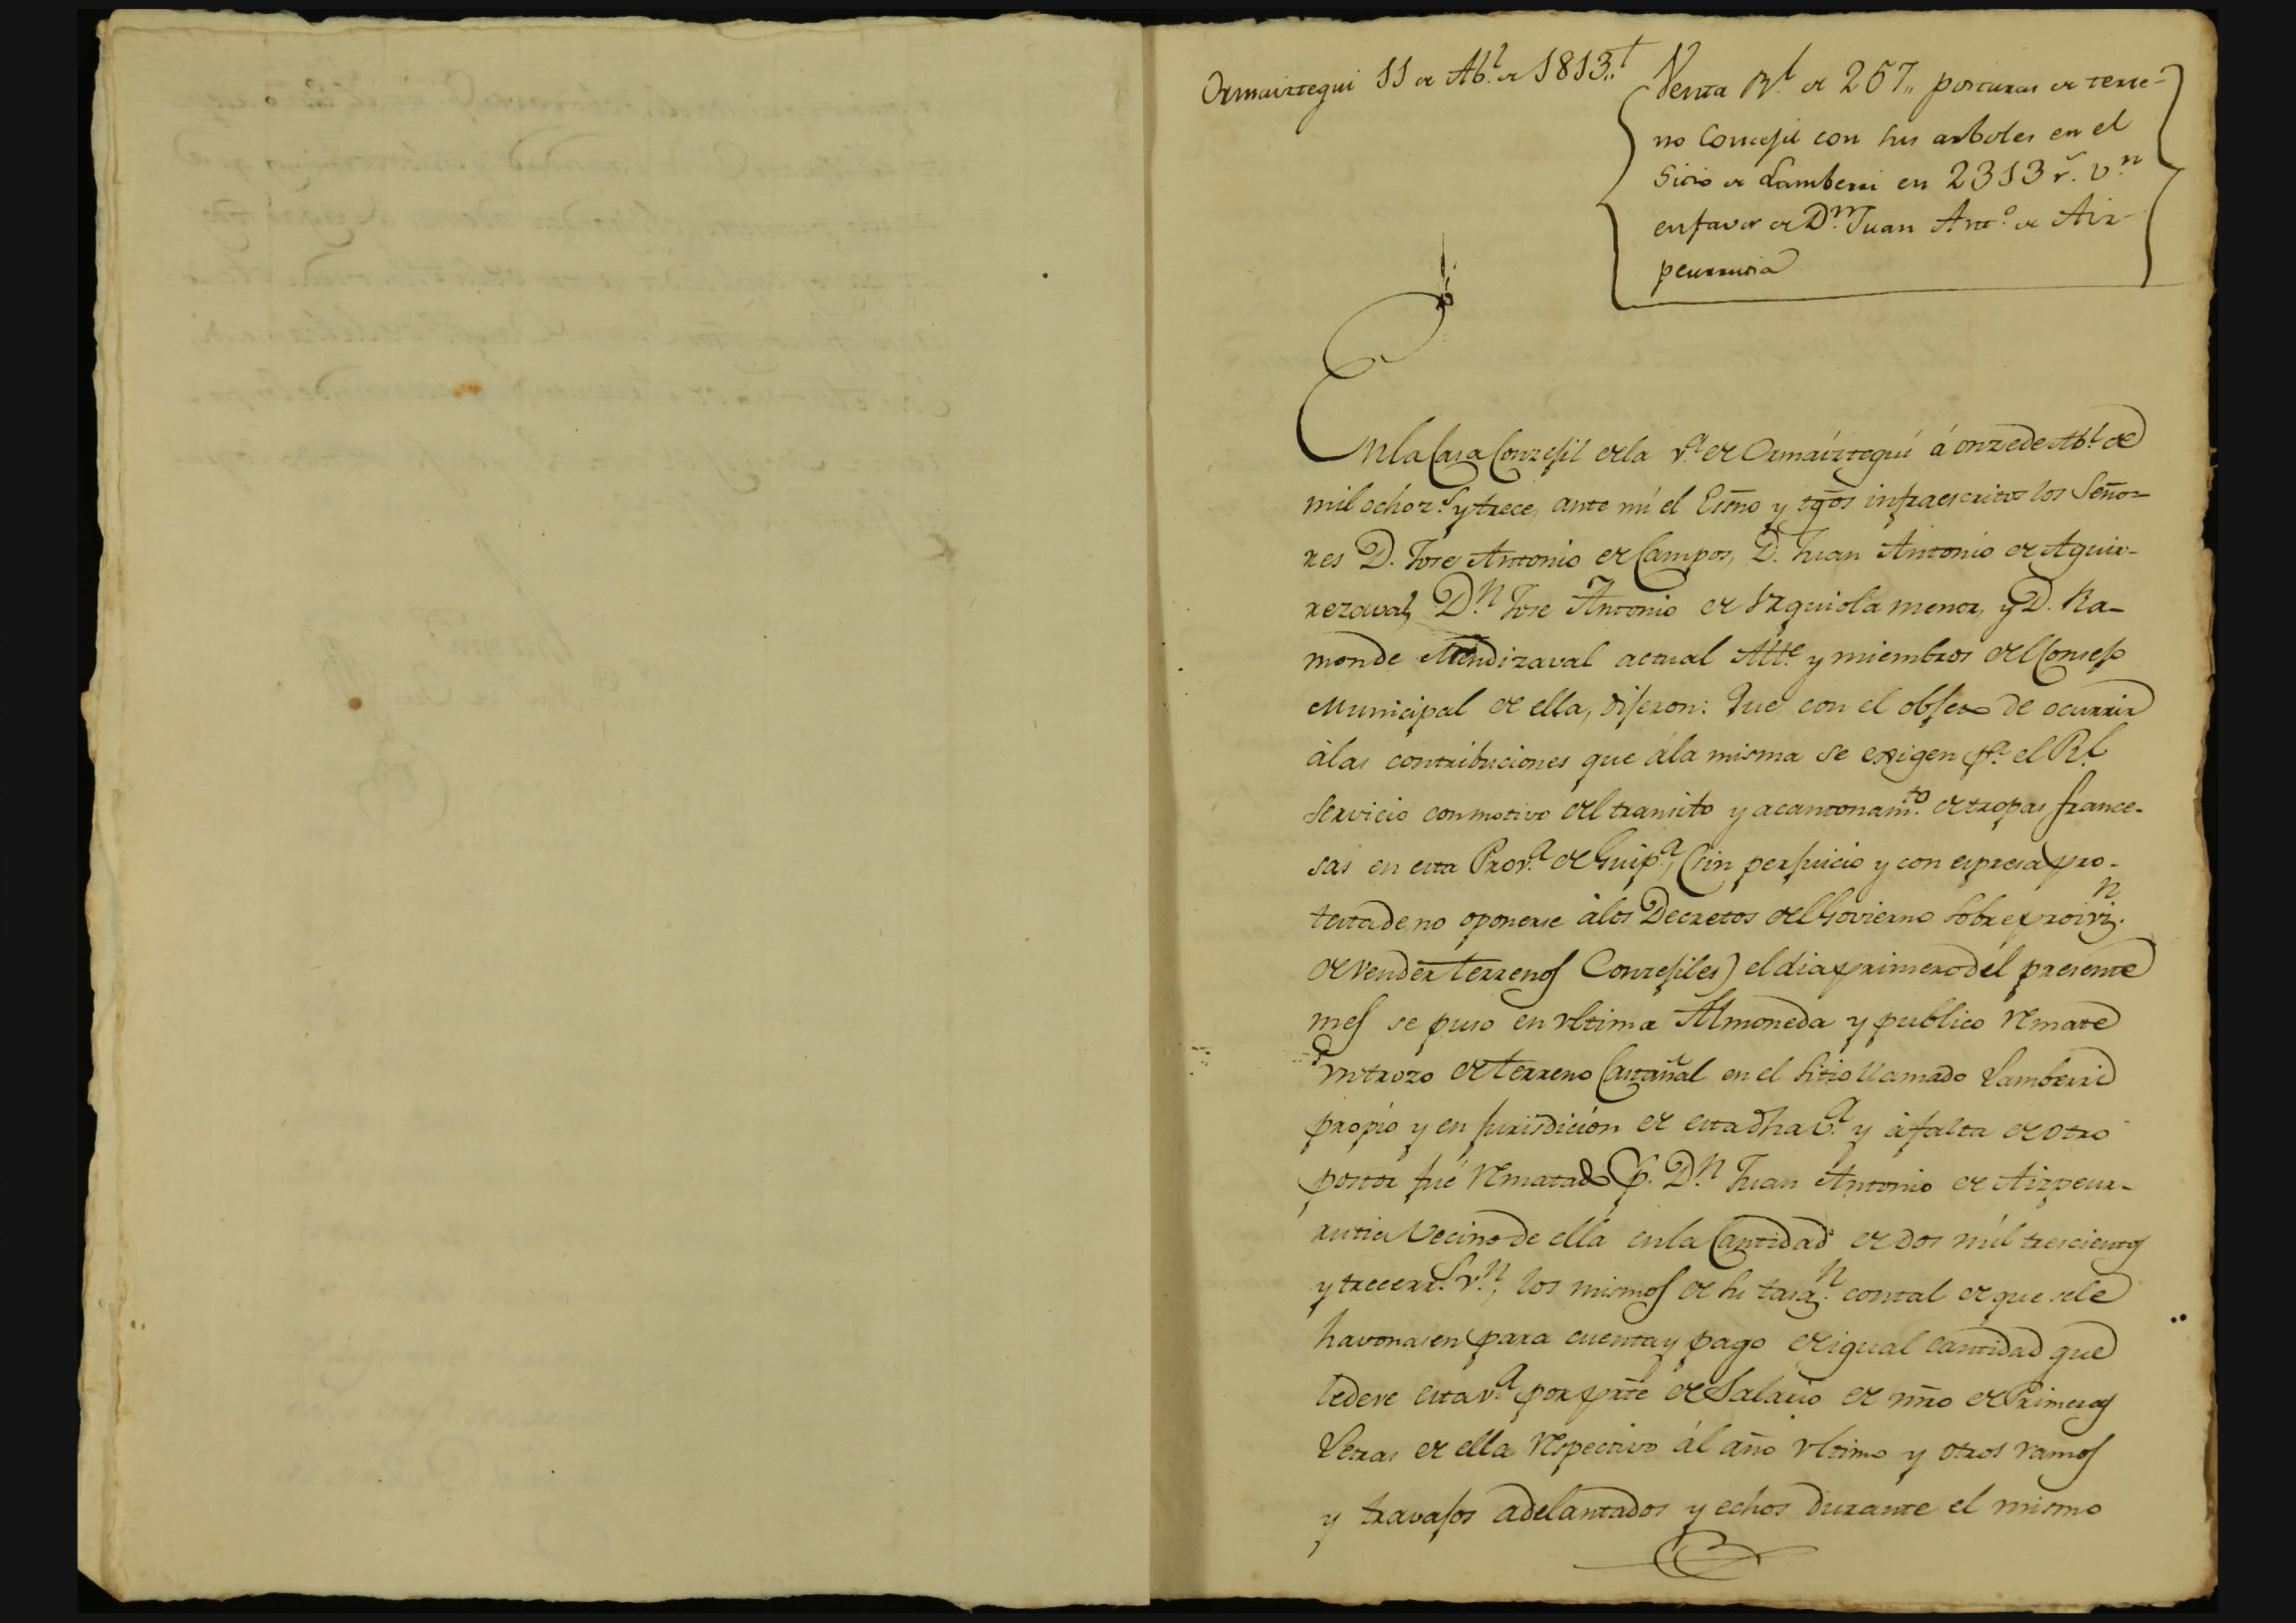 Ormaiztegui 11 de Ab.l de 1813.,
Venta Rl. de 257,, posturas de terre-
no Concejil con sus arboles en el
Sitio de Lamberri en 2313 r.s v.n
en favor de D.n Juan Ant.o de Aiz-
peurrutia
En la Casa Conzejil de la v.a de Ormaíztegui á onze de Ab.l de
mil ochoz.s y trece, ante mí el Essno y tgõs infraescritos los Seño-
res D. Jose Antonio de Campos, D. Juan Antonio de Aguir-
rezaval, D.n Jose Antonio de Urquiola menor, y D. Ra-
mon de Mendizaval actual Alle y miembros del Consejo
Municipal de ella, dijeron: Que con el objeto de ocurrir
à las contribuciones que á la misma se exigen p.a el Rl.
Servicio con motivo del transito y acantonam.to de tropas france-
sas en esta Prov.a de Guip.a, (sin perjuicio y con espresa pro-
testa de no oponerse à los Decretos del Govierno sobre proiviz.n
de vender terrenos Conzejiles) el dia primero del presente
mes se puso en ultima Almoneda y publico remate
un trozo de terreno Castañal en el sitio llamado Lamberri
propio y en jurisdición de esta dha v.a y à falta de otro
postor fué rematado p. D.n Juan Antonio de Aizpeur-
rutia Vecino de ella en la Cantidad de dos mil trescientos
y trece rr.s v.n, los mismos de su tasaz.n con tal de que se le
havonasen para cuenta y pago de igual cantidad que
le deve esta v.a por prte de Salario de mr̃o de Primeras
Letras de ella respectivo ál año ultimo y otros ramos
y travajos adelantados y echos durante el mismo